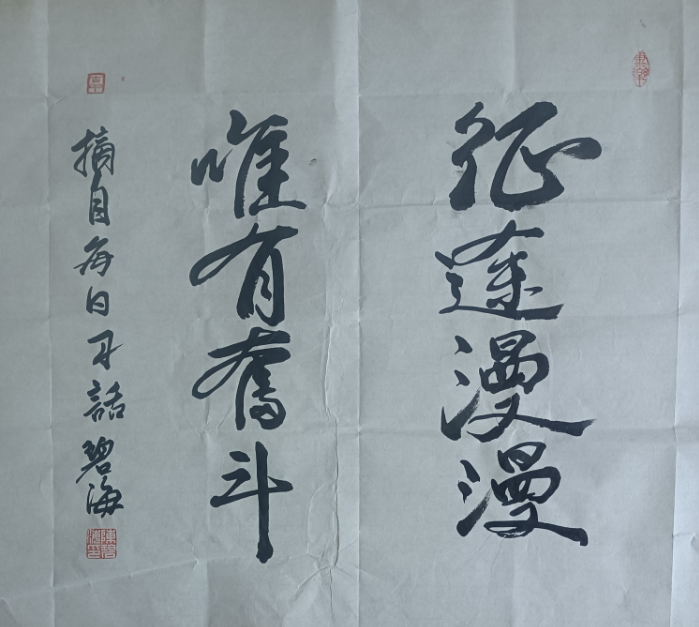 征途漫漫
唯有奋斗
摘自每日一话 碧海